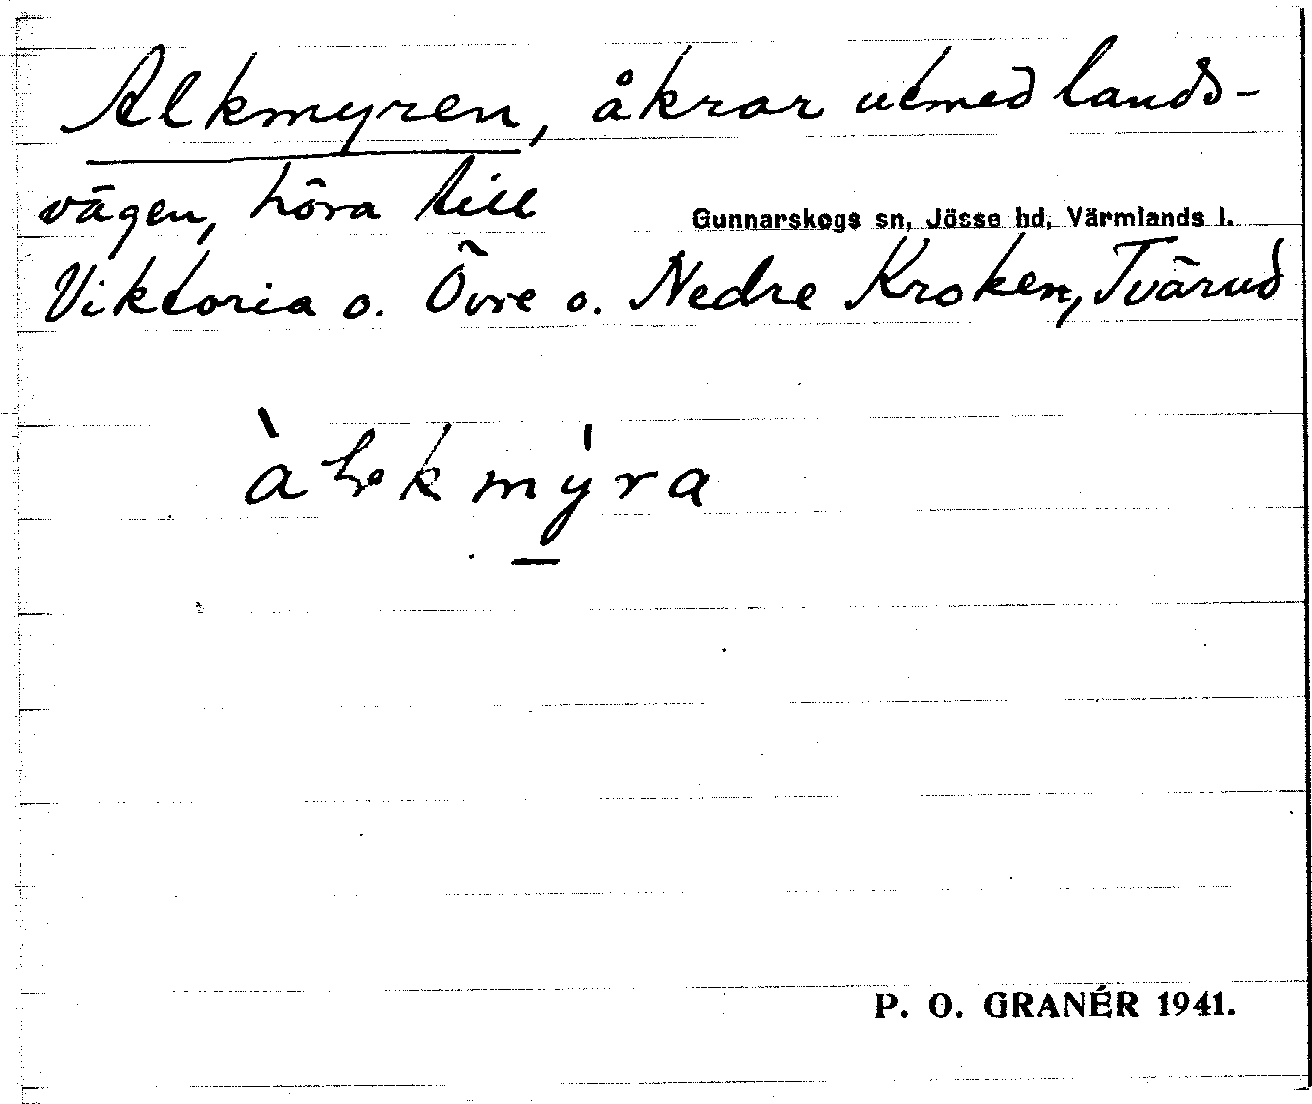 Alkmyren, åkrar utmed lands-
vägen, höra till
Gunnarskogs sn, Jösse hd, Värmlands l.
Viktoria o. Övre o. Nedre Kroken, Tvärud
P. O. GRANÉR 1941.